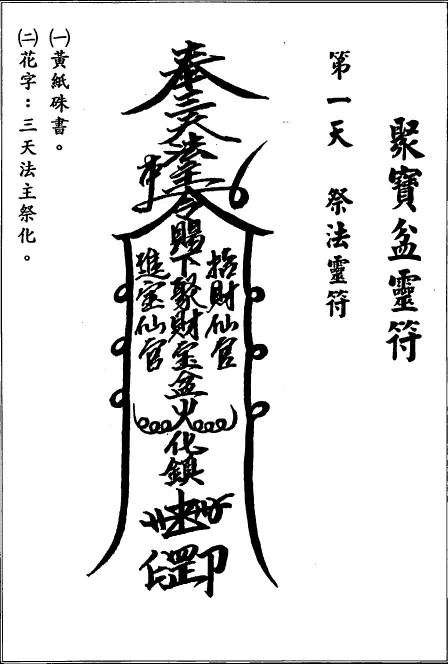 聚寶盆靈符
第一天　祭法靈符
奉三天法主令賜下聚財宝盆火化鎮
招財仙官
進宝仙官
㈠黃紙硃書。
㈡花字：三天法主祭化。